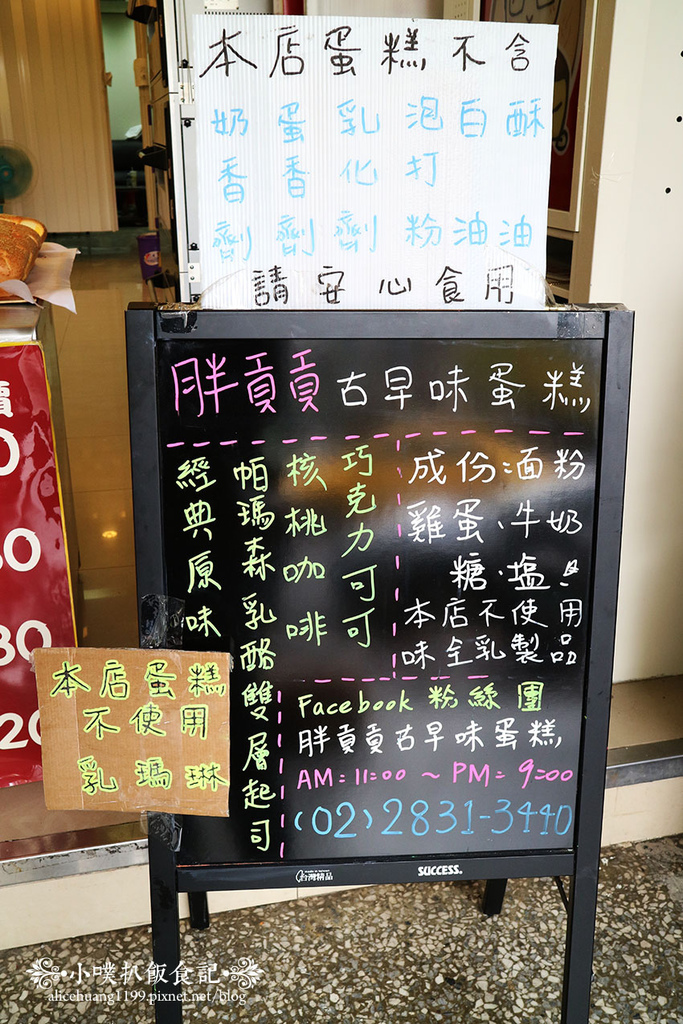 本店蛋糕不含
奶香劑
蛋香劑
乳化劑
泡打粉
白油
酥油
請安心食用
胖貢貢古早味蛋糕
成份:面粉
雞蛋、牛奶
糖、塩
本店不使用
味全乳製品
巧克力可可
核桃咖啡
帕瑪森乳酪雙層起司
經典原味
Facebook 粉絲團
胖貢貢古早味蛋糕
AM:11:00 ~ PM:9:00
(02)2831-3440
本店蛋糕
不使用
乳瑪琳
台灣精品
SUCCESS.
小噗扒飯食記
alicehuang1199.pixnet.net/blog